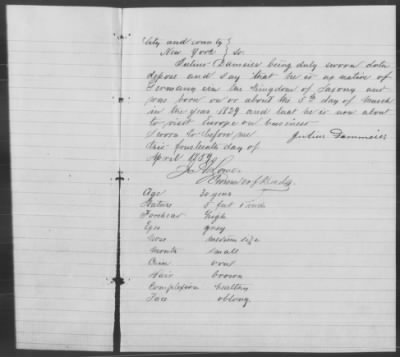 City and county }
New York } ss.
Julius Dammeier being duly sworn doth
depose and say that he is a native of
Germany in the Kingdom of Saxony and
was born on or about the 5th day of March
in the year 1829 and that he is now about
to visit Europe on business
Sworn to before me Julius Dammeier
this fourteenth day of
April 1859
Age 30 years
Stature 5 feet 1 inch
Forehead high
Eyes grey
Nose medium size
Mouth small
Chin oval
Hair brown
Complexion healthy
Face oblong